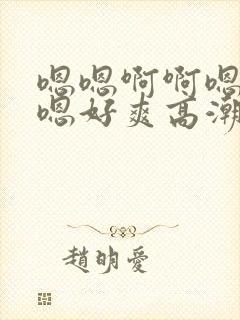 嗯嗯啊啊嗯
嗯好爽高潮
趙明愛